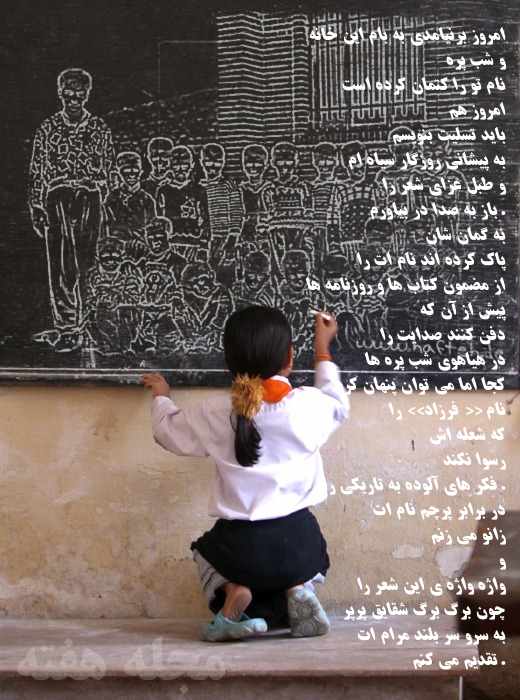 امروز برنیامدی به بام این خانه
و شب پره
نام تو را کتمان کرده است
امروز هم
باید تسلیت بنویسم
به پیشانی روزگار سیاه ام
و طبل عزای شعر را
. باز به صدا در بیاورم
به گمان شان
پاک کرده اند نام ات را
از مضمون کتاب ها و روزنامه ها
پیش از آن که
دفن کنند صدایت را
در هیاهوی شب پره ها
کجا اما می توان پنهان کر
نام << فرزاد>> را
که شعله اش
رسوا نکند
. فکر های آلوده به تاریکی ر
در برابر پرچم نام ات
زانو می زنم
و
واژه واژه ی این شعر را
چون برگ برگ شقایق پرپر
به سرو سر بلند مرام ات
. تقدیم می کنم
مجله هفته